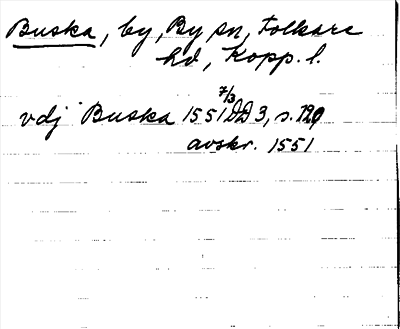 Buska, by, By sn, Folkare
hd, Kopp. l.
7/3
vdj Buska 1551 DD 3, s. 129
avskr. 1551